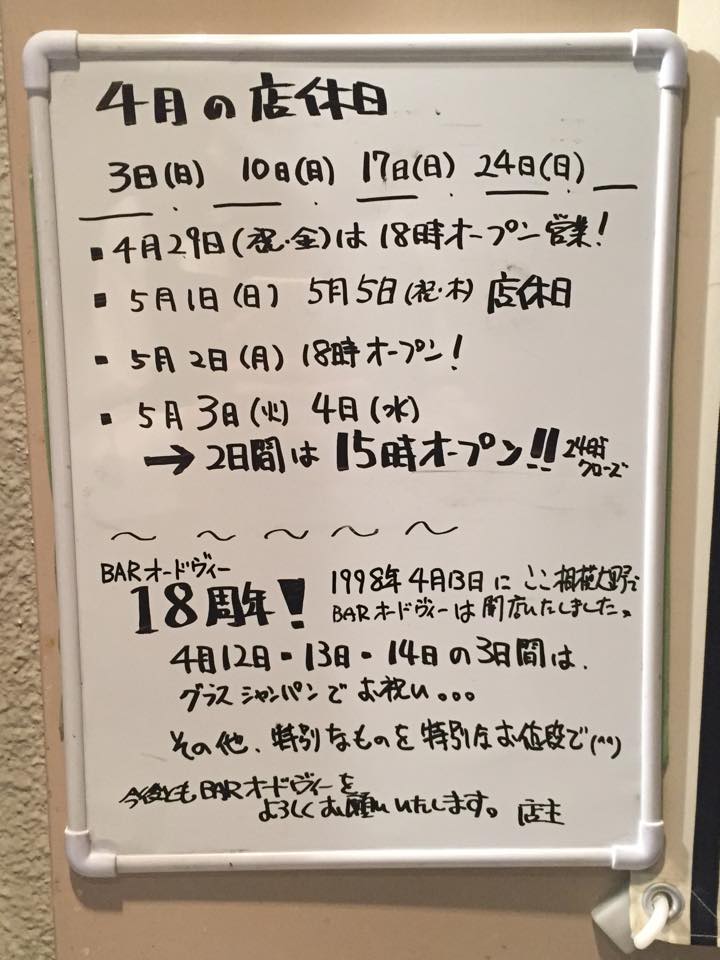 4月の店休日
3日(日) 10日(日) 17日(日) 24日(日)
▪ 4月29日(祝・金)は 18時オープン営業!
▪ 5月1日(日) 5月5日(祝・木) 店休日
▪ 5月2日(月) 18時オープン!
▪ 5月3日(火) 4日(水)
→ 2日間は 15時オープン!! 24時クローズ
〜 〜 〜 〜 〜
BARオードヴィー
18周年!
1998年4月13日に ここ相模大野で
BARオードヴィーは開店いたしました。
4月12日・13日・14日の3日間は、
グラスシャンパンで お祝い。。。
その他、特別なものを特別なお値段で(^^)
今後ともBARオードヴィーを
よろしくお願いいたします。 店主